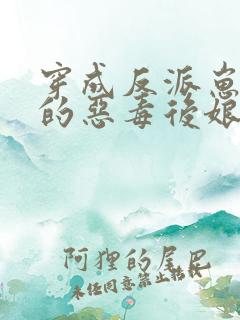 穿成反派崽
的惡毒後娘
阿狸的尾巴
未经同意禁止转载